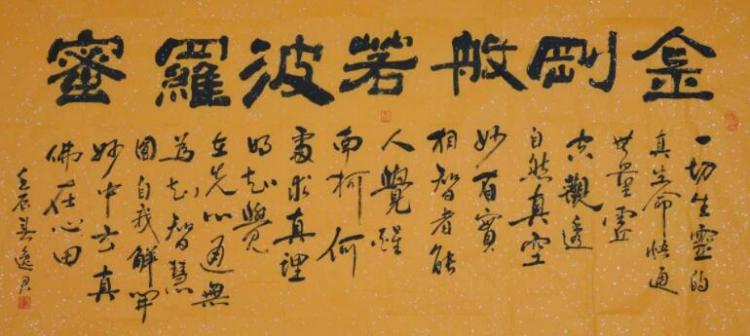 金剛般若波羅蜜
一切生靈的
真生命悟通
無量靈
空觀透
自然真空
妙有實
相智者能
人覺醒
南柯何
處求真理
明知覺
在先心通無
為知智慧
圓自我解開
妙中玄真
佛在心田
壬辰